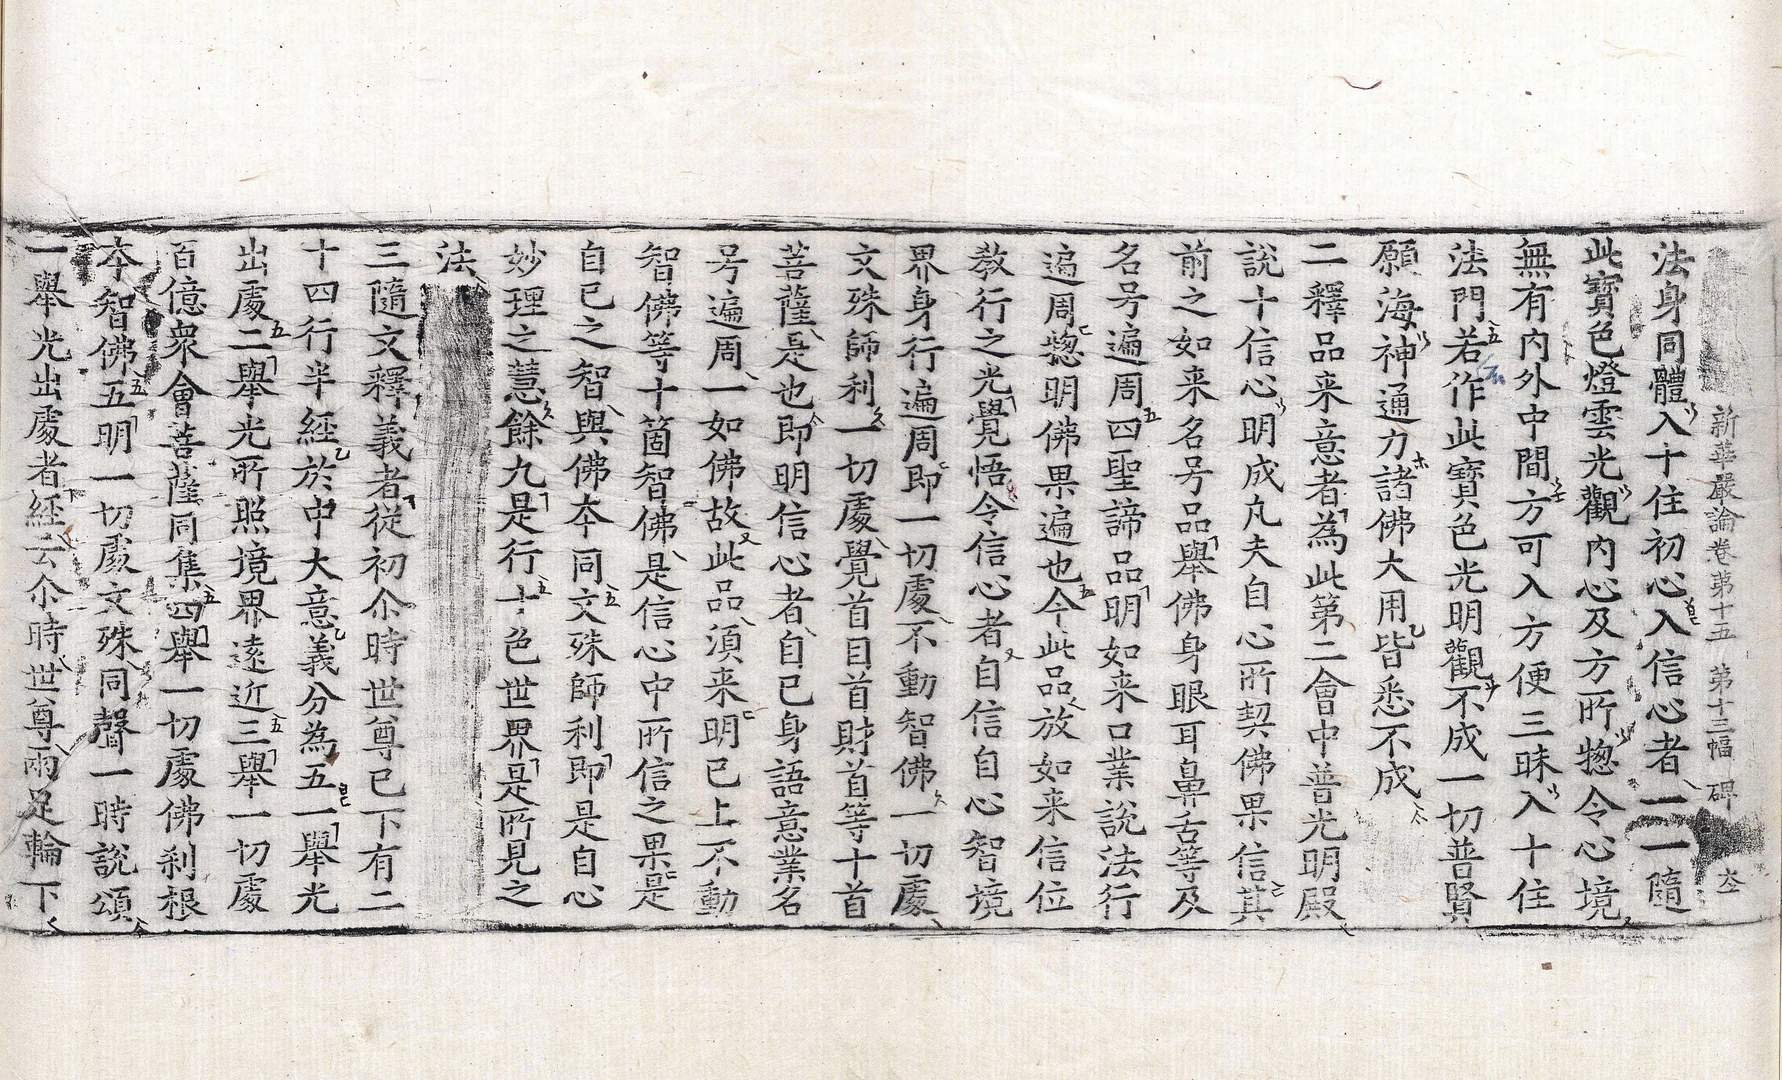 新華嚴論卷第十五　第十三幅　碑
法身同體入十住初心入信心者一一隨
此寶色燈雲光觀內心及方所惣令心境
無有內外中間方可入方便三昧入十住
法門若作此寶色光明觀不成一切普賢
願海神通力諸佛大用皆悉不成
二釋品来意者為此第二會中普光明殿
說十信心明成凡夫自心所契佛果信其
前之如来名号品舉佛身眼耳鼻舌等及
名号遍周四聖諦品明如来口業說法行
遍周惣明佛果遍也今此品放如来信位
教行之光覺悟令信心者自信自心智境
界身行遍周即一切處不動智佛一切處
文殊師利一切處覺首目首財首等十首
菩薩是也即明信心者自己身語意業名
号遍周一如佛故此品須来明已上不動
智佛等十箇智佛是信心中所信之果是
自己之智與佛夲同文殊師利即是自心
妙理之慧餘九是行十色世界是所見之
法
三隨文釋義者從初尒時世尊已下有二
十四行半經於中大意義分為五一舉光
出處二舉光所照境界遠近三舉一切處
百億衆會菩薩同集四舉一切處佛剎根
夲智佛五明一切處文殊同聲一時說頌
一舉光出處者經云尒時世尊兩足輪下